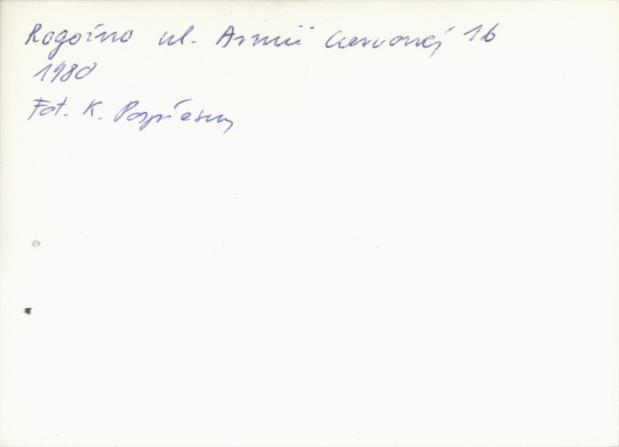 Rogoźno ul. Armii Czerwonej 16
1980
Fot. K. Pospieszny